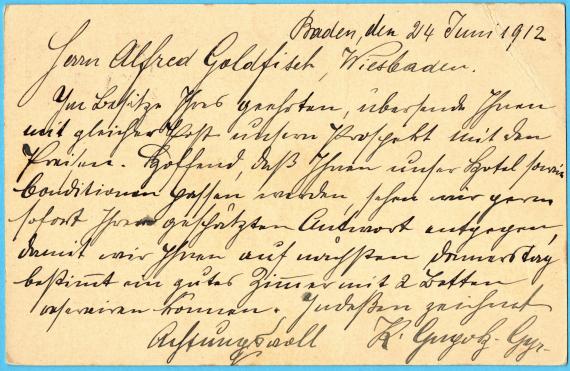 Baden, den 24 Juni 1912
Herrn Alfred Goldfisch, Wiesbaden.
Im Besitze Ihres geehrten, übersende Ihnen
mit gleicher Post unsern Prospekt mit den
Preisen. Hoffend, daß Ihnen unser Hotel sowie
Conditionen passen werden, sehen wir gern
sofort Ihrer geschätzten Antwort entgegen,
damit wir Ihnen auf nächsten Donnerstag
bestimmt ein gutes Zimmer mit 2 Betten
reservieren können. Indeßen zeichnet
Achtungsvoll K.